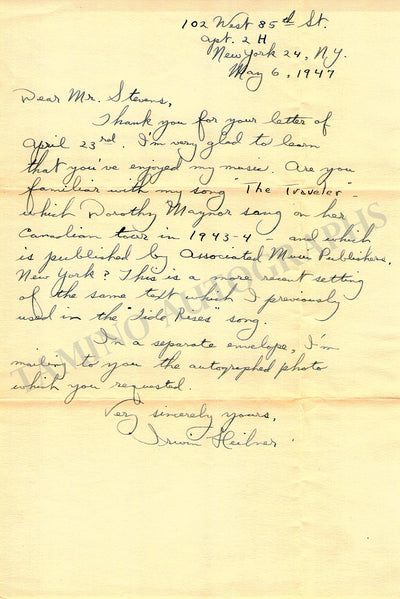 102 West 85th St.
apt. 2 H
New York 24, N.Y.
May 6, 1947
Dear Mr. Stevens,
Thank you for your letter of
April 23rd. I'm very glad to learn
that you've enjoyed my music. Are you
familiar with my song "The Traveler" -
which Dorothy Maynor sang on her
Canadian tour in 1943-4 - and which
is published by Associated Music Publishers,
New York? This is a more recent setting
of the same text which I previously
used in the "Tide Rises" song.
In a separate envelope, I'm
mailing to you the autographed photo
which you requested.
Very sincerely yours,
Irwin Heilner
TAMINO AUTOGRAPHS